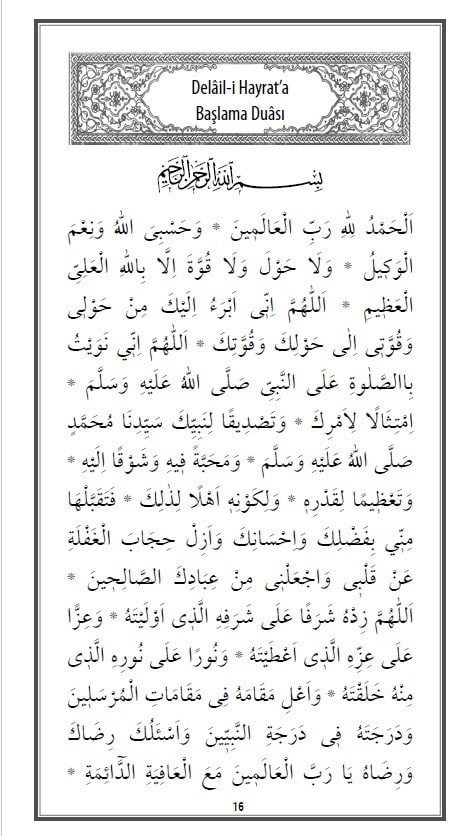 Delâil-i Hayrat’a
Başlama Duâsı
بِسْمِ اللّٰهِ الرَّحْمٰنِ الرَّحِيمِ
اَلْحَمْدُ لِلّٰهِ رَبِّ الْعَالَمٖينَ * وَحَسْبِىَ اللّٰهُ وَنِعْمَ
الْوَكٖيلُ * وَلَا حَوْلَ وَلَا قُوَّةَ اِلَّا بِاللّٰهِ الْعَلِىِّ
الْعَظٖيمِ * اَللّٰهُمَّ اِنّٖى اَبْرَءُ اِلَيْكَ مِنْ حَوْلٖى
وَقُوَّتٖى اِلٰى حَوْلِكَ وَقُوَّتِكَ * اَللّٰهُمَّ اِنّٖي نَوَيْتُ
بِاالصَّلٰوةِ عَلَى النَّبِىِّ صَلَّى اللّٰهُ عَلَيْهِ وَسَلَّمَ *
اِمْتِثَالًا لِاَمْرِكَ * وَتَصْدٖيقًا لِنَبِيِّكَ سَيِّدِنَا مُحَمَّدٍ
صَلَّى اللّٰهُ عَلَيْهِ وَسَلَّمَ * وَمَحَبَّةً فٖيهِ وَشَوْقًا اِلَيْهِ *
وَتَعْظٖيمًا لِقَدْرِهٖ * وَلِكَوْنِهٖ اَهْلًا لِذٰلِكَ * فَتَقَبَّلْهَا
مِنّٖي بِفَضْلِكَ وَاِحْسَانِكَ وَاَزِلْ حِجَابَ الْغَفْلَةِ
عَنْ قَلْبٖى وَاجْعَلْنٖى مِنْ عِبَادِكَ الصَّالِحٖينَ *
اَللّٰهُمَّ زِدْهُ شَرَفًا عَلٰى شَرَفِهِ الَّذٖى اَوْلَيْتَهُ * وَعِزًّا
عَلٰى عِزِّهِ الَّذٖى اَعْطَيْتَهُ * وَنُورًا عَلٰى نُورِهِ الَّذٖى
مِنْهُ خَلَقْتَهُ * وَاَعْلِ مَقَامَهُ فٖى مَقَامَاتِ الْمُرْسَلٖينَ
وَدَرَجَتَهُ فٖى دَرَجَةِ النَّبِيّٖينَ وَاَسْئَلُكَ رِضَاكَ
وَرِضَاهُ يَا رَبَّ الْعَالَمٖينَ مَعَ الْعَافِيَةِ الدَّائِمَةِ *
16